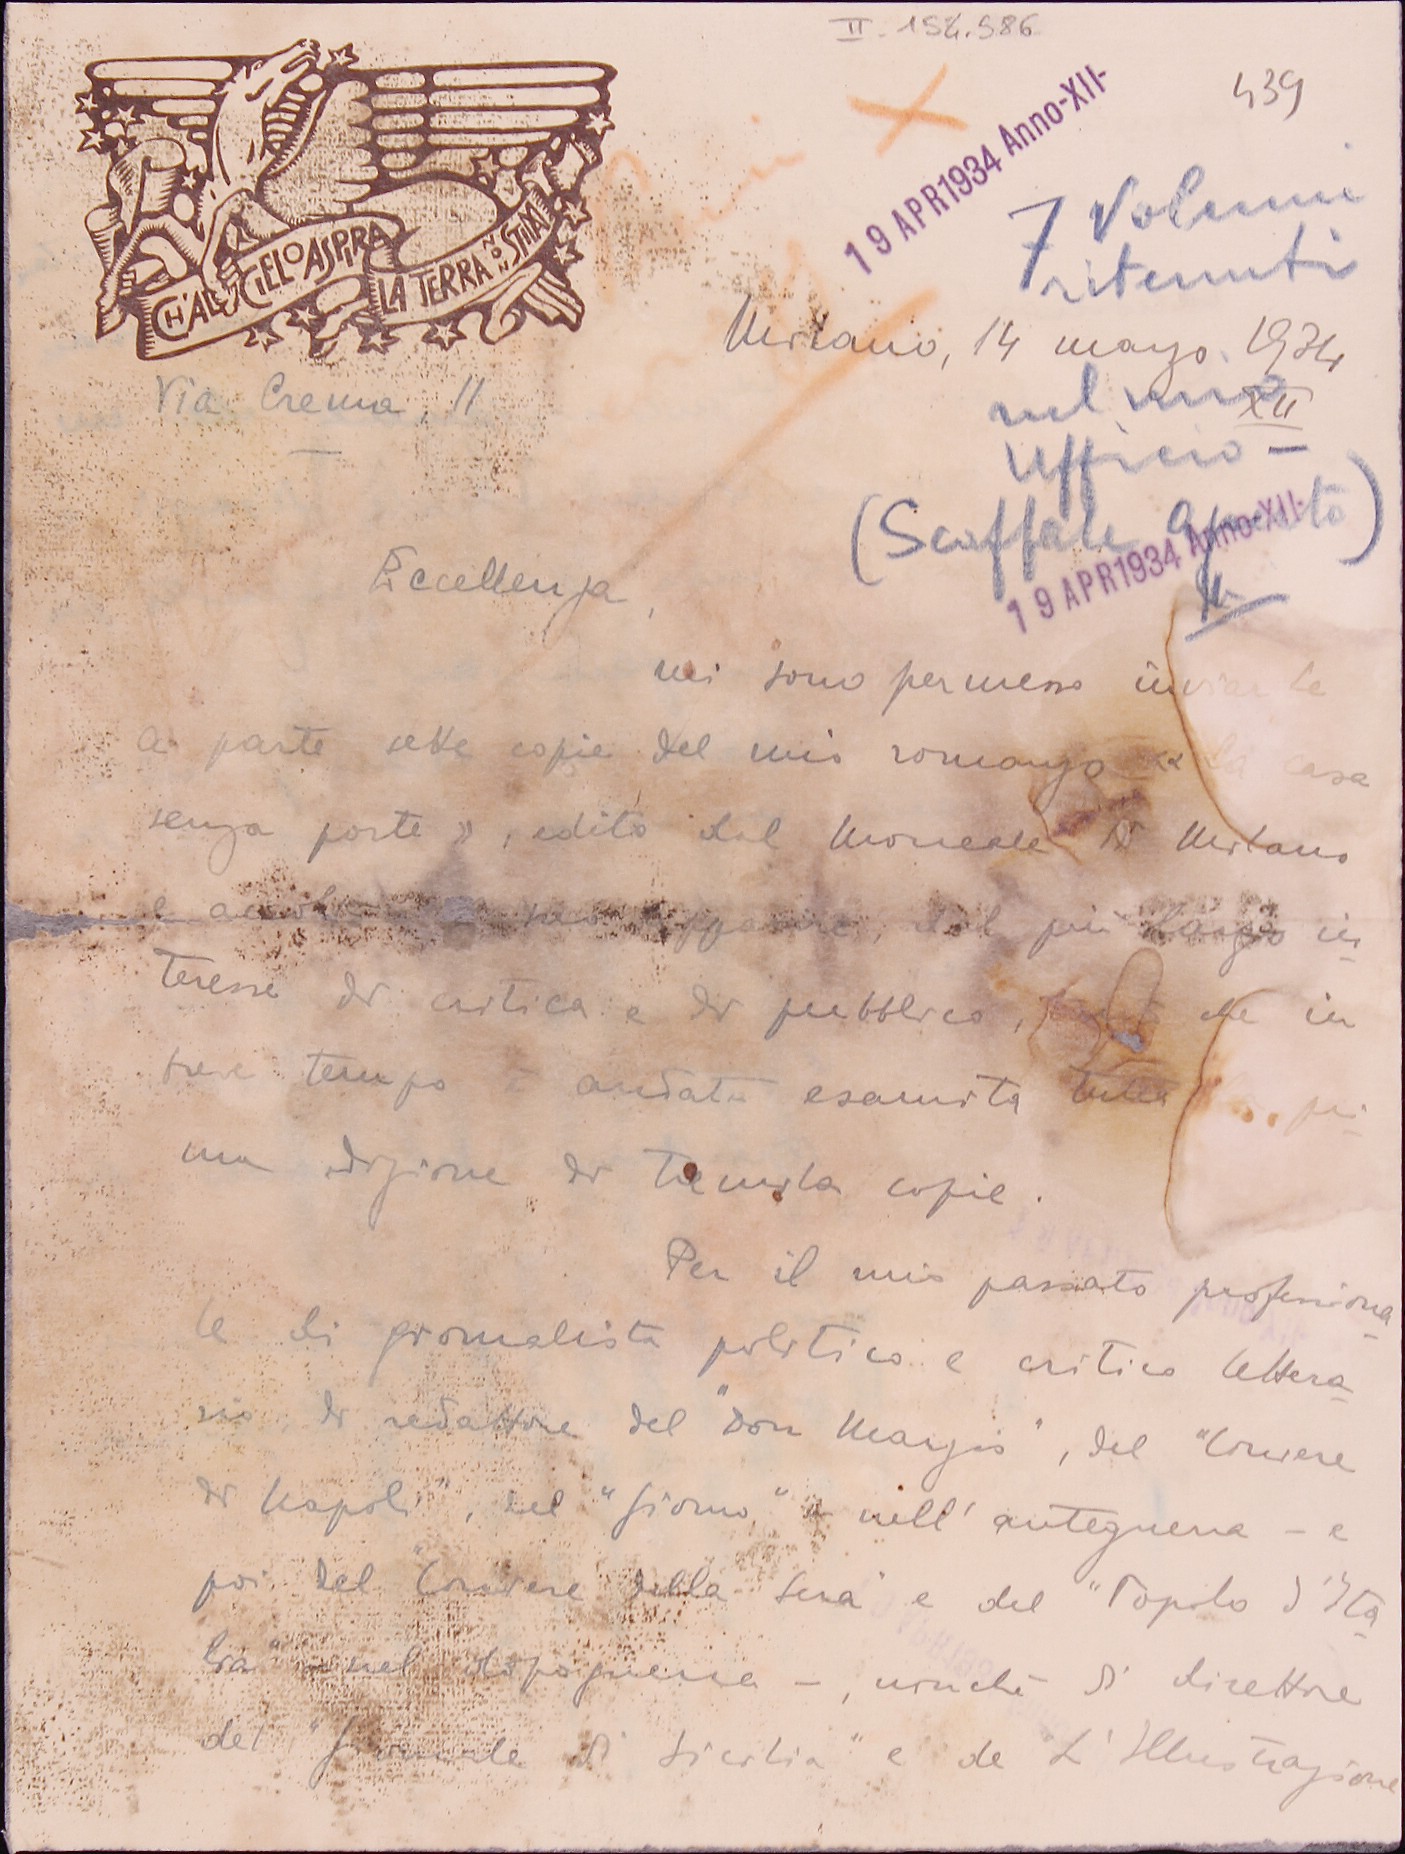 II. 154.586
439
19 APR 1934 Anno-XII-
7 Volumi
ritenuti
nel mio
Ufficio -
(Scaffale aperto)
19 APR 1934 Anno-XII-
CH'AL CIELO ASPIRA
LA TERRA NON STIMA
Milano, 14 marzo 1934
XII
Via Crema, 11
Eccellenza,
mi sono permesso inviarLe
a parte sette copie del mio romanzo « La casa
senza porte », edito dal Morreale di Milano
e al suo apparire, dal più largo in-
teresse di critica e di pubblico, che in
breve tempo è andata esaurita tutta la pri-
ma edizione di tremila copie.
Per il mio passato professiona-
le di giornalista politico e critico lettera-
rio, di redattore del "Don Marzio", del "Corriere
di Napoli", del "Giorno" - nell'anteguerra - e
poi del "Corriere della Sera" e del "Popolo d'Ita-
lia" - nel dopoguerra -, nonché di direttore
del "Giornale di Sicilia" e de "L'Illustrazione